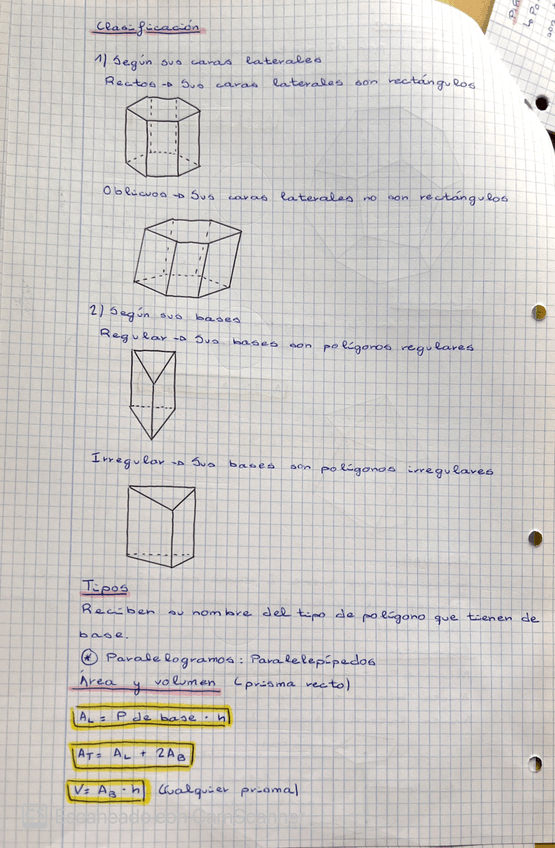 Clasificación
1) Según sus caras laterales
Rectos → Sus caras laterales son rectángulos
Oblicuos → Sus caras laterales no son rectángulos
2) Según sus bases
Regular → Sus bases son polígonos regulares
Irregular → Sus bases son polígonos irregulares
Tipos
Reciben su nombre del tipo de polígono que tienen de
base.
* Paralelogramos: Paralelepípedos
Área y volumen (prisma recto)
AL = P de base · h
AT = AL + 2AB
V = AB · h (Cualquier prisma)
Escaneado con CamScanner